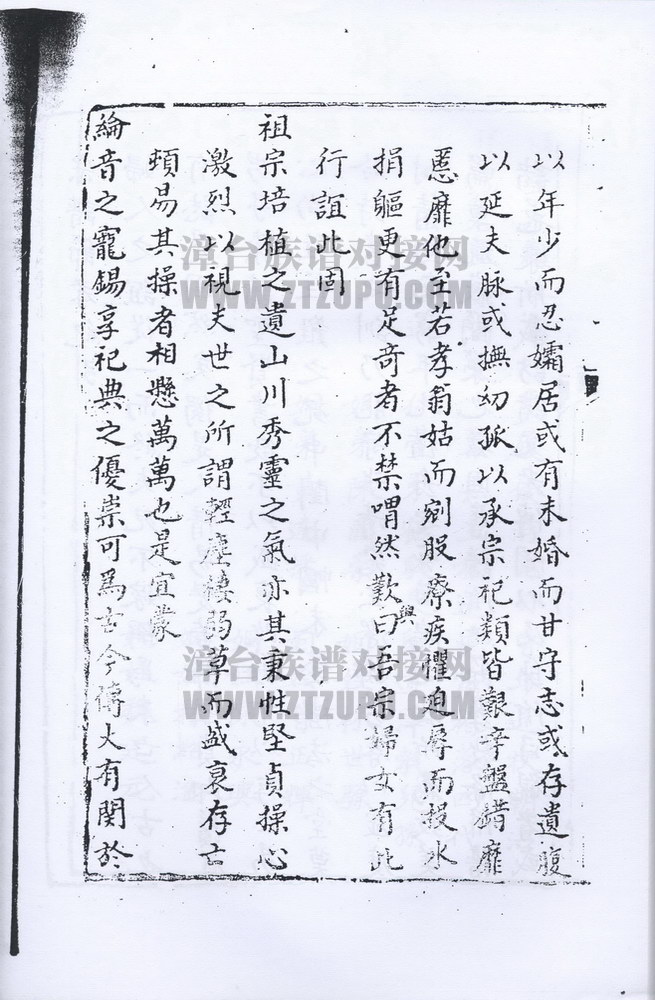 以年少而忍孀居或有未婚而甘守志或存遺腹
以延夫脉或撫幼孤以承宗祀類皆艱辛盤錯靡
慝靡他至若孝翁姑而剜股療疾懼迫辱而投水
捐軀更有足奇者不禁喟然歎與曰吾宗婦女有此
行誼此固
祖宗培植之遺山川秀靈之氣亦其秉性堅貞操心
激烈以視夫世之所謂輕塵棲弱草而盛衰存亡
頓易其操者相懸萬萬也是宜蒙
綸音之寵錫享祀典之優崇可為古今傳大有関於
漳台族谱对接网
WWW.ZTZUPU.COM
漳台族谱对接网
WWW.ZTZUPU.COM